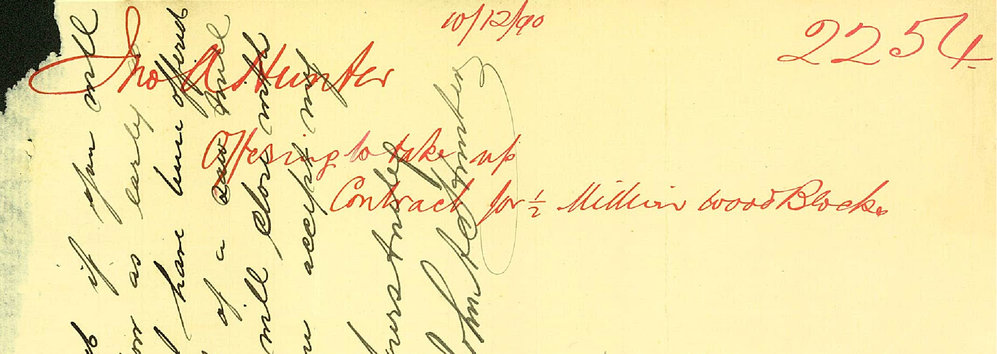 10/12/90
2254
Jno A. Hunter
Offering to take up
Contract for ½ Million wood Blocks
if you will
as early
have been offered
of a saw mill
will close with
accept my
yours truly
John A Hunter